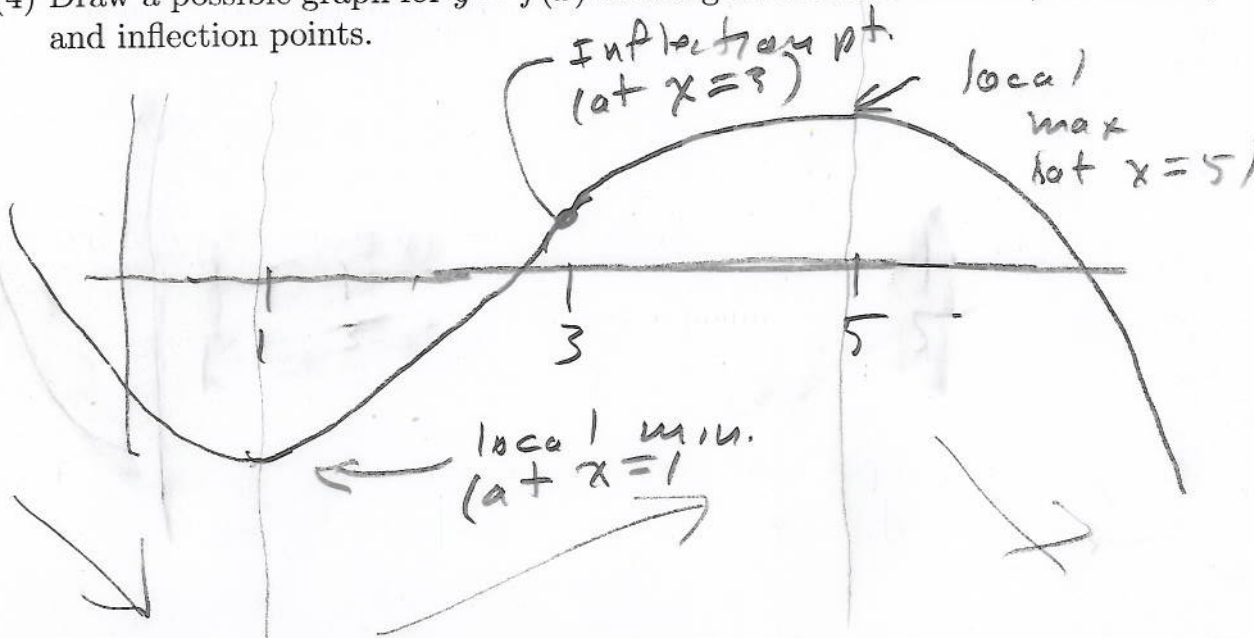 and inflection points.
Inflection pt.
(at x=3)
local
max
(at x=5)
1
3
5
local min.
(at x=1